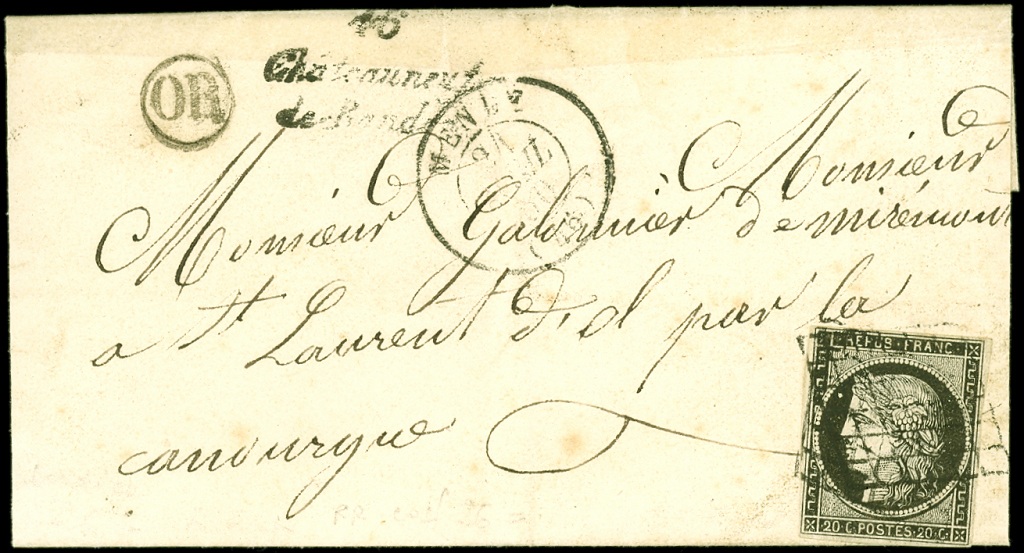 46
Châteauneuf-
de-Rand
OR
MENDE
(46)
Monsieur Monsieur
Galonnier de mirémont
a St Laurent d'ol par la
canourgue
REPUB·FRANC
20·C·POSTES·20·C